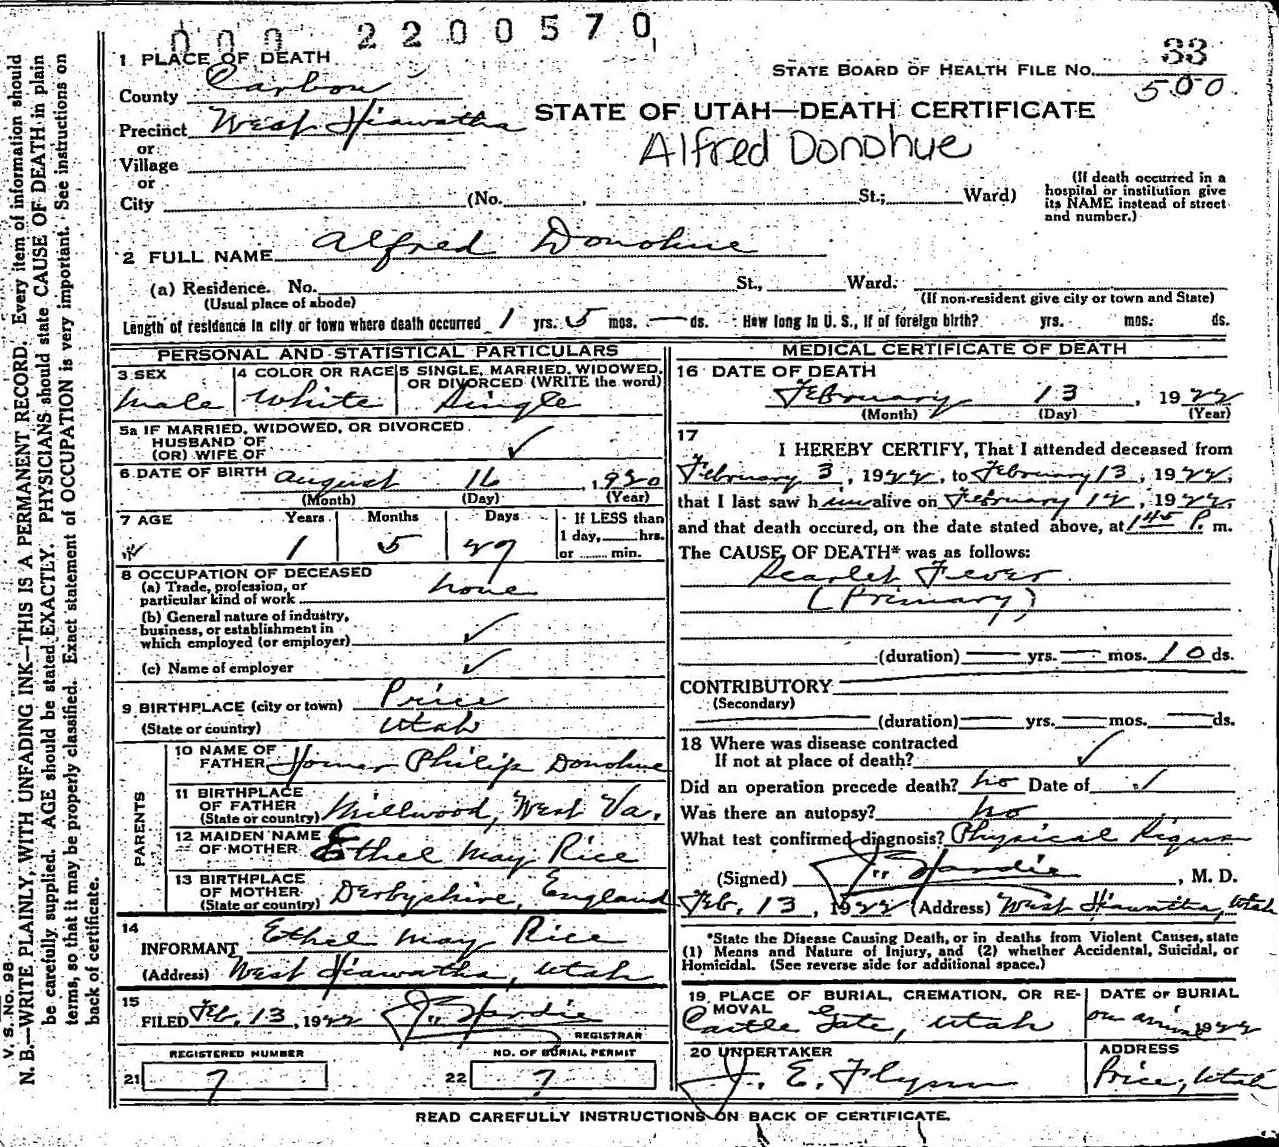 000 2200570
1 PLACE OF DEATH
STATE BOARD OF HEALTH FILE No. 33
500
County Carbon
STATE OF UTAH—DEATH CERTIFICATE
Precinct West Hiawatha
Alfred Donohue
or
Village
or
City (No. , St.; Ward)
(If death occurred in a
hospital or institution give
its NAME instead of street
and number.)
2 FULL NAME Alfred Donohue
(a) Residence. No. St., Ward.
(Usual place of abode) (If non-resident give city or town and State)
Length of residence in city or town where death occurred 1 yrs. 5 mos. — ds. How long in U. S., if of foreign birth? yrs. mos. ds.
PERSONAL AND STATISTICAL PARTICULARS
3 SEX
Male
4 COLOR OR RACE
White
5 SINGLE, MARRIED, WIDOWED,
OR DIVORCED (WRITE the word)
Single
5a IF MARRIED, WIDOWED, OR DIVORCED
HUSBAND OF
(OR) WIFE OF ✓
6 DATE OF BIRTH August 16, 1920
(Month) (Day) (Year)
7 AGE Years Months Days
1 5 29
If LESS than
1 day, hrs.
or min.
8 OCCUPATION OF DECEASED
(a) Trade, profession, or
particular kind of work none
(b) General nature of industry,
business, or establishment in
which employed (or employer) ✓
(c) Name of employer ✓
9 BIRTHPLACE (city or town) Price
(State or country) Utah
PARENTS
10 NAME OF
FATHER Homer Philip Donohue
11 BIRTHPLACE
OF FATHER
(State or country) Millwood, West Va.
12 MAIDEN NAME
OF MOTHER Ethel May Rice
13 BIRTHPLACE
OF MOTHER
(State or country) Derbyshire, England
14
INFORMANT Ethel May Rice
(Address) West Hiawatha, Utah
15
FILED Feb. 13, 1922 J. Hardie
REGISTRAR
REGISTERED NUMBER
21 7
NO. OF BURIAL PERMIT
22 7
MEDICAL CERTIFICATE OF DEATH
16 DATE OF DEATH
February 13, 1922
(Month) (Day) (Year)
17
I HEREBY CERTIFY, That I attended deceased from
February 3, 1922, to February 13, 1922,
that I last saw him alive on February 12, 1922,
and that death occured, on the date stated above, at 1 45 P. m.
The CAUSE OF DEATH* was as follows:
Scarlet Fever
(Primary)
(duration) — yrs. — mos. 10 ds.
CONTRIBUTORY
(Secondary)
(duration) — yrs. — mos. — ds.
18 Where was disease contracted
If not at place of death? ✓
Did an operation precede death? no Date of
Was there an autopsy? no
What test confirmed diagnosis? Physical Signs
(Signed) J. Hardie, M. D.
Feb. 13, 1922 (Address) West Hiawatha, Utah
*State the Disease Causing Death, or in deaths from Violent Causes, state
(1) Means and Nature of Injury, and (2) whether Accidental, Suicidal, or
Homicidal. (See reverse side for additional space.)
19 PLACE OF BURIAL, CREMATION, OR RE-
MOVAL
Castle Gate, Utah
DATE OF BURIAL
on arrival 1922
20 UNDERTAKER
J. E. Flynn
ADDRESS
Price, Utah
READ CAREFULLY INSTRUCTIONS ON BACK OF CERTIFICATE.
V. S. No. 98
N. B.—WRITE PLAINLY, WITH UNFADING INK—THIS IS A PERMANENT RECORD. Every item of information should
be carefully supplied. AGE should be stated EXACTLY. PHYSICIANS should state CAUSE OF DEATH in plain
terms, so that it may be properly classified. Exact statement of OCCUPATION is very important. See instructions on
back of certificate.